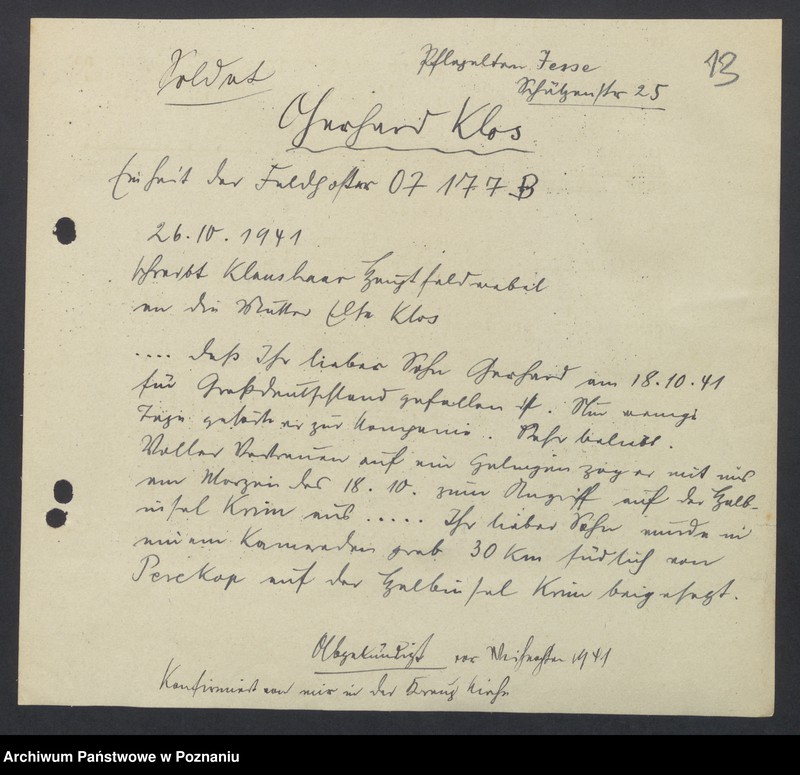 13
Soldat
Pflegeltern Jesse
Schützenstr 25
Gerhard Klos
Einheit der Feldpostnr 07 177 B
26.10.1941
schreibt Klenshaar Hauptfeldwebel
an die Mutter Else Klos
.... daß Ihr lieber Sohn Gerhard am 18.10.41
für Großdeutschland gefallen ist. Nur wenige
Tage gehörte er zur Kompanie. Sehr beliebt.
Voller Vertrauen auf ein Gelingen zog er mit uns
am Morgen des 18.10. zum Angriff auf der Halb-
insel Krim aus ..... Ihr lieber Sohn wurde in
einem Kameraden grab 30 Km südlich von
Perekop auf der Halbinsel Krim beigesetzt.
Abgekündigt vor Weihnachten 1941
Konfirmiert von mir in der Kreuz Kirche
Archiwum Państwowe w Poznaniu